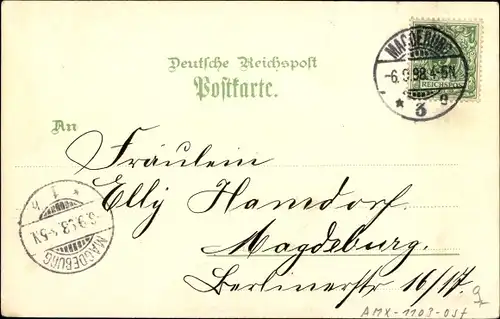 Deutsche Reichspost
Postkarte.
MAGDEBURG
-6.9.98.4-5N.
* 3 g.
REICHSPOST
An
Fräulein
Elly Hamdorf.
Magdeburg.
Berlinerstr 16/17.
* 1 h
6.9.98.4-5N.
MAGDEBURG
AMX-1103-05f